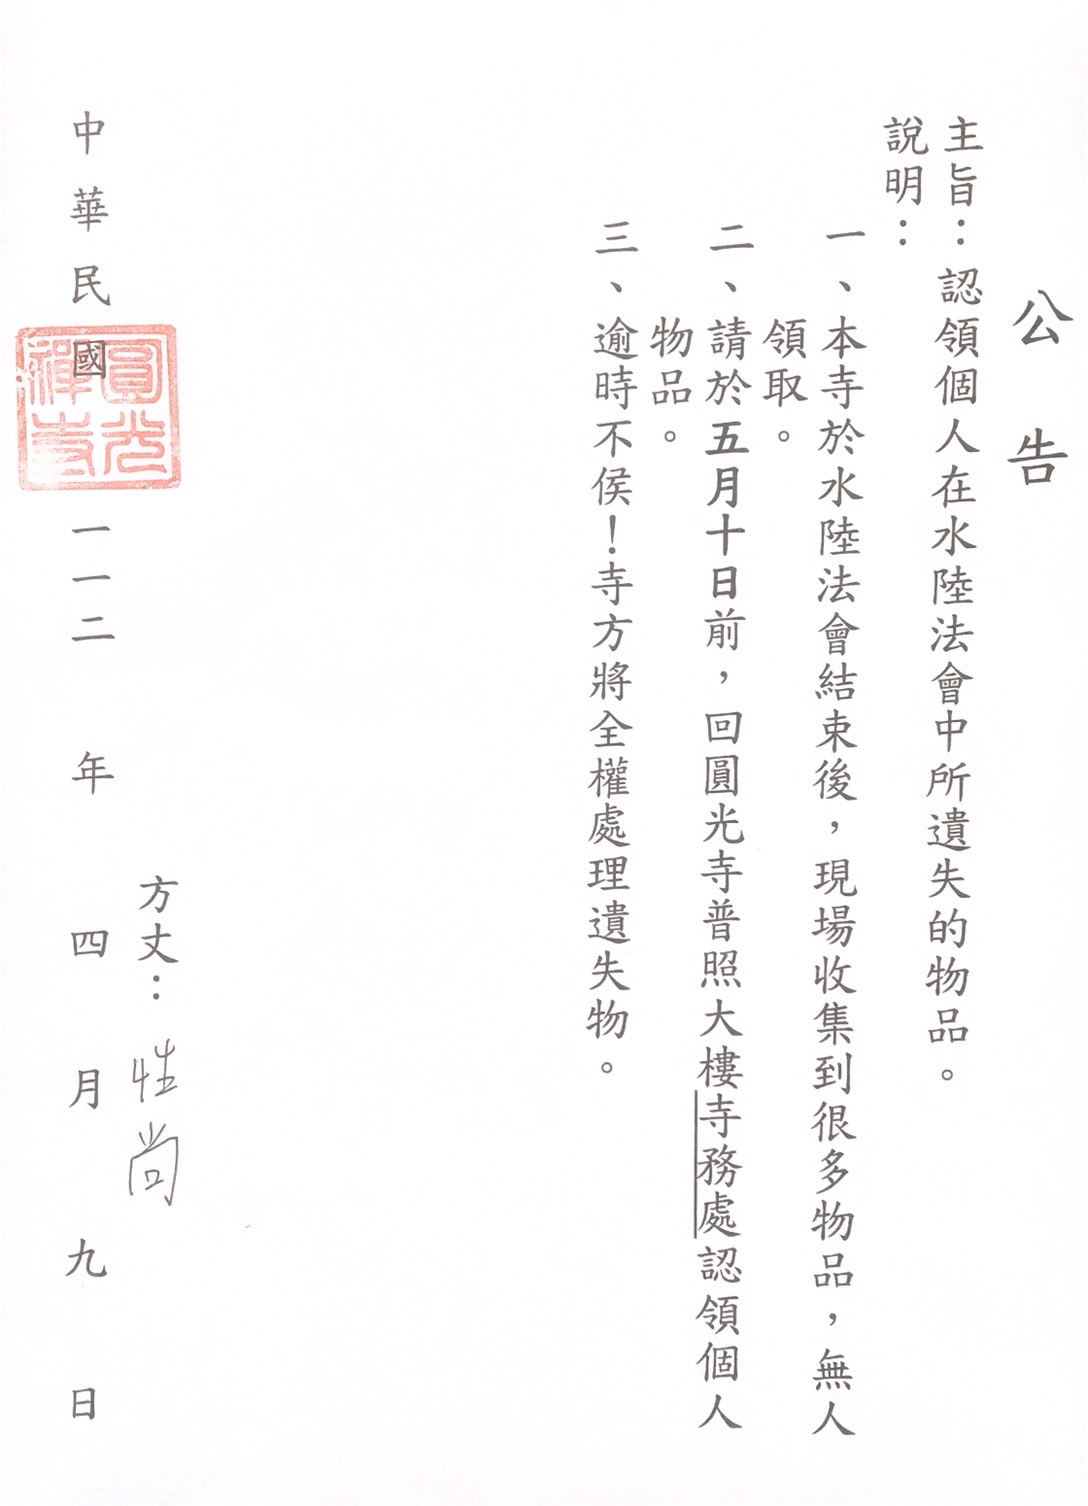 公告
主旨：認領個人在水陸法會中所遺失的物品。
說明：
一、本寺於水陸法會結束後，現場收集到很多物品，無人
領取。
二、請於五月十日前，回圓光寺普照大樓寺務處認領個人
物品。
三、逾時不侯！寺方將全權處理遺失物。
方丈：性尚
中華民國一一二年四月九日
圓光禪寺